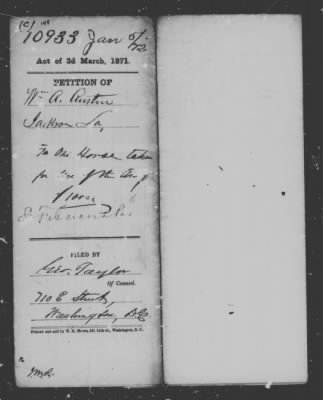 (C)
10933 Jan
Act of 3d March, 1871.
PETITION OF
Wm A. Austin
Jackson La,
For One Horse taken
for use of the Army
FILED BY
Geo. Taylor
Of Counsel.
710 E Street,
Washington, D.C.
Printed and sold by W. H. Moore, 511 11th st., Washington, D. C.